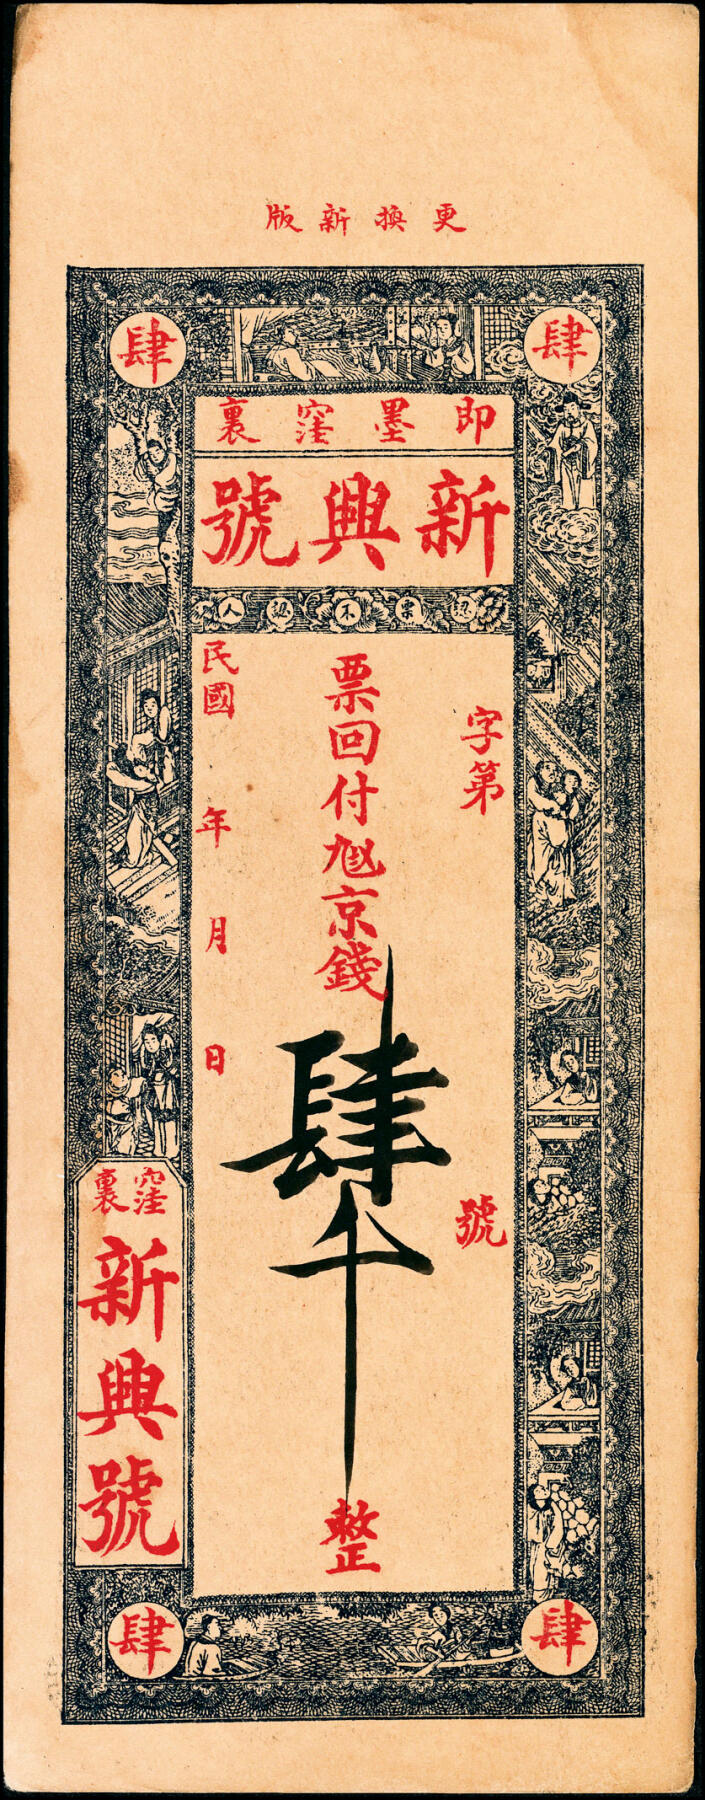 更換新版
肆
肆
即墨窪裏
新興號
認票不認人
字第 號
票回付 京錢肆千整
民國 年 月 日
窪裏
新興號
肆
肆